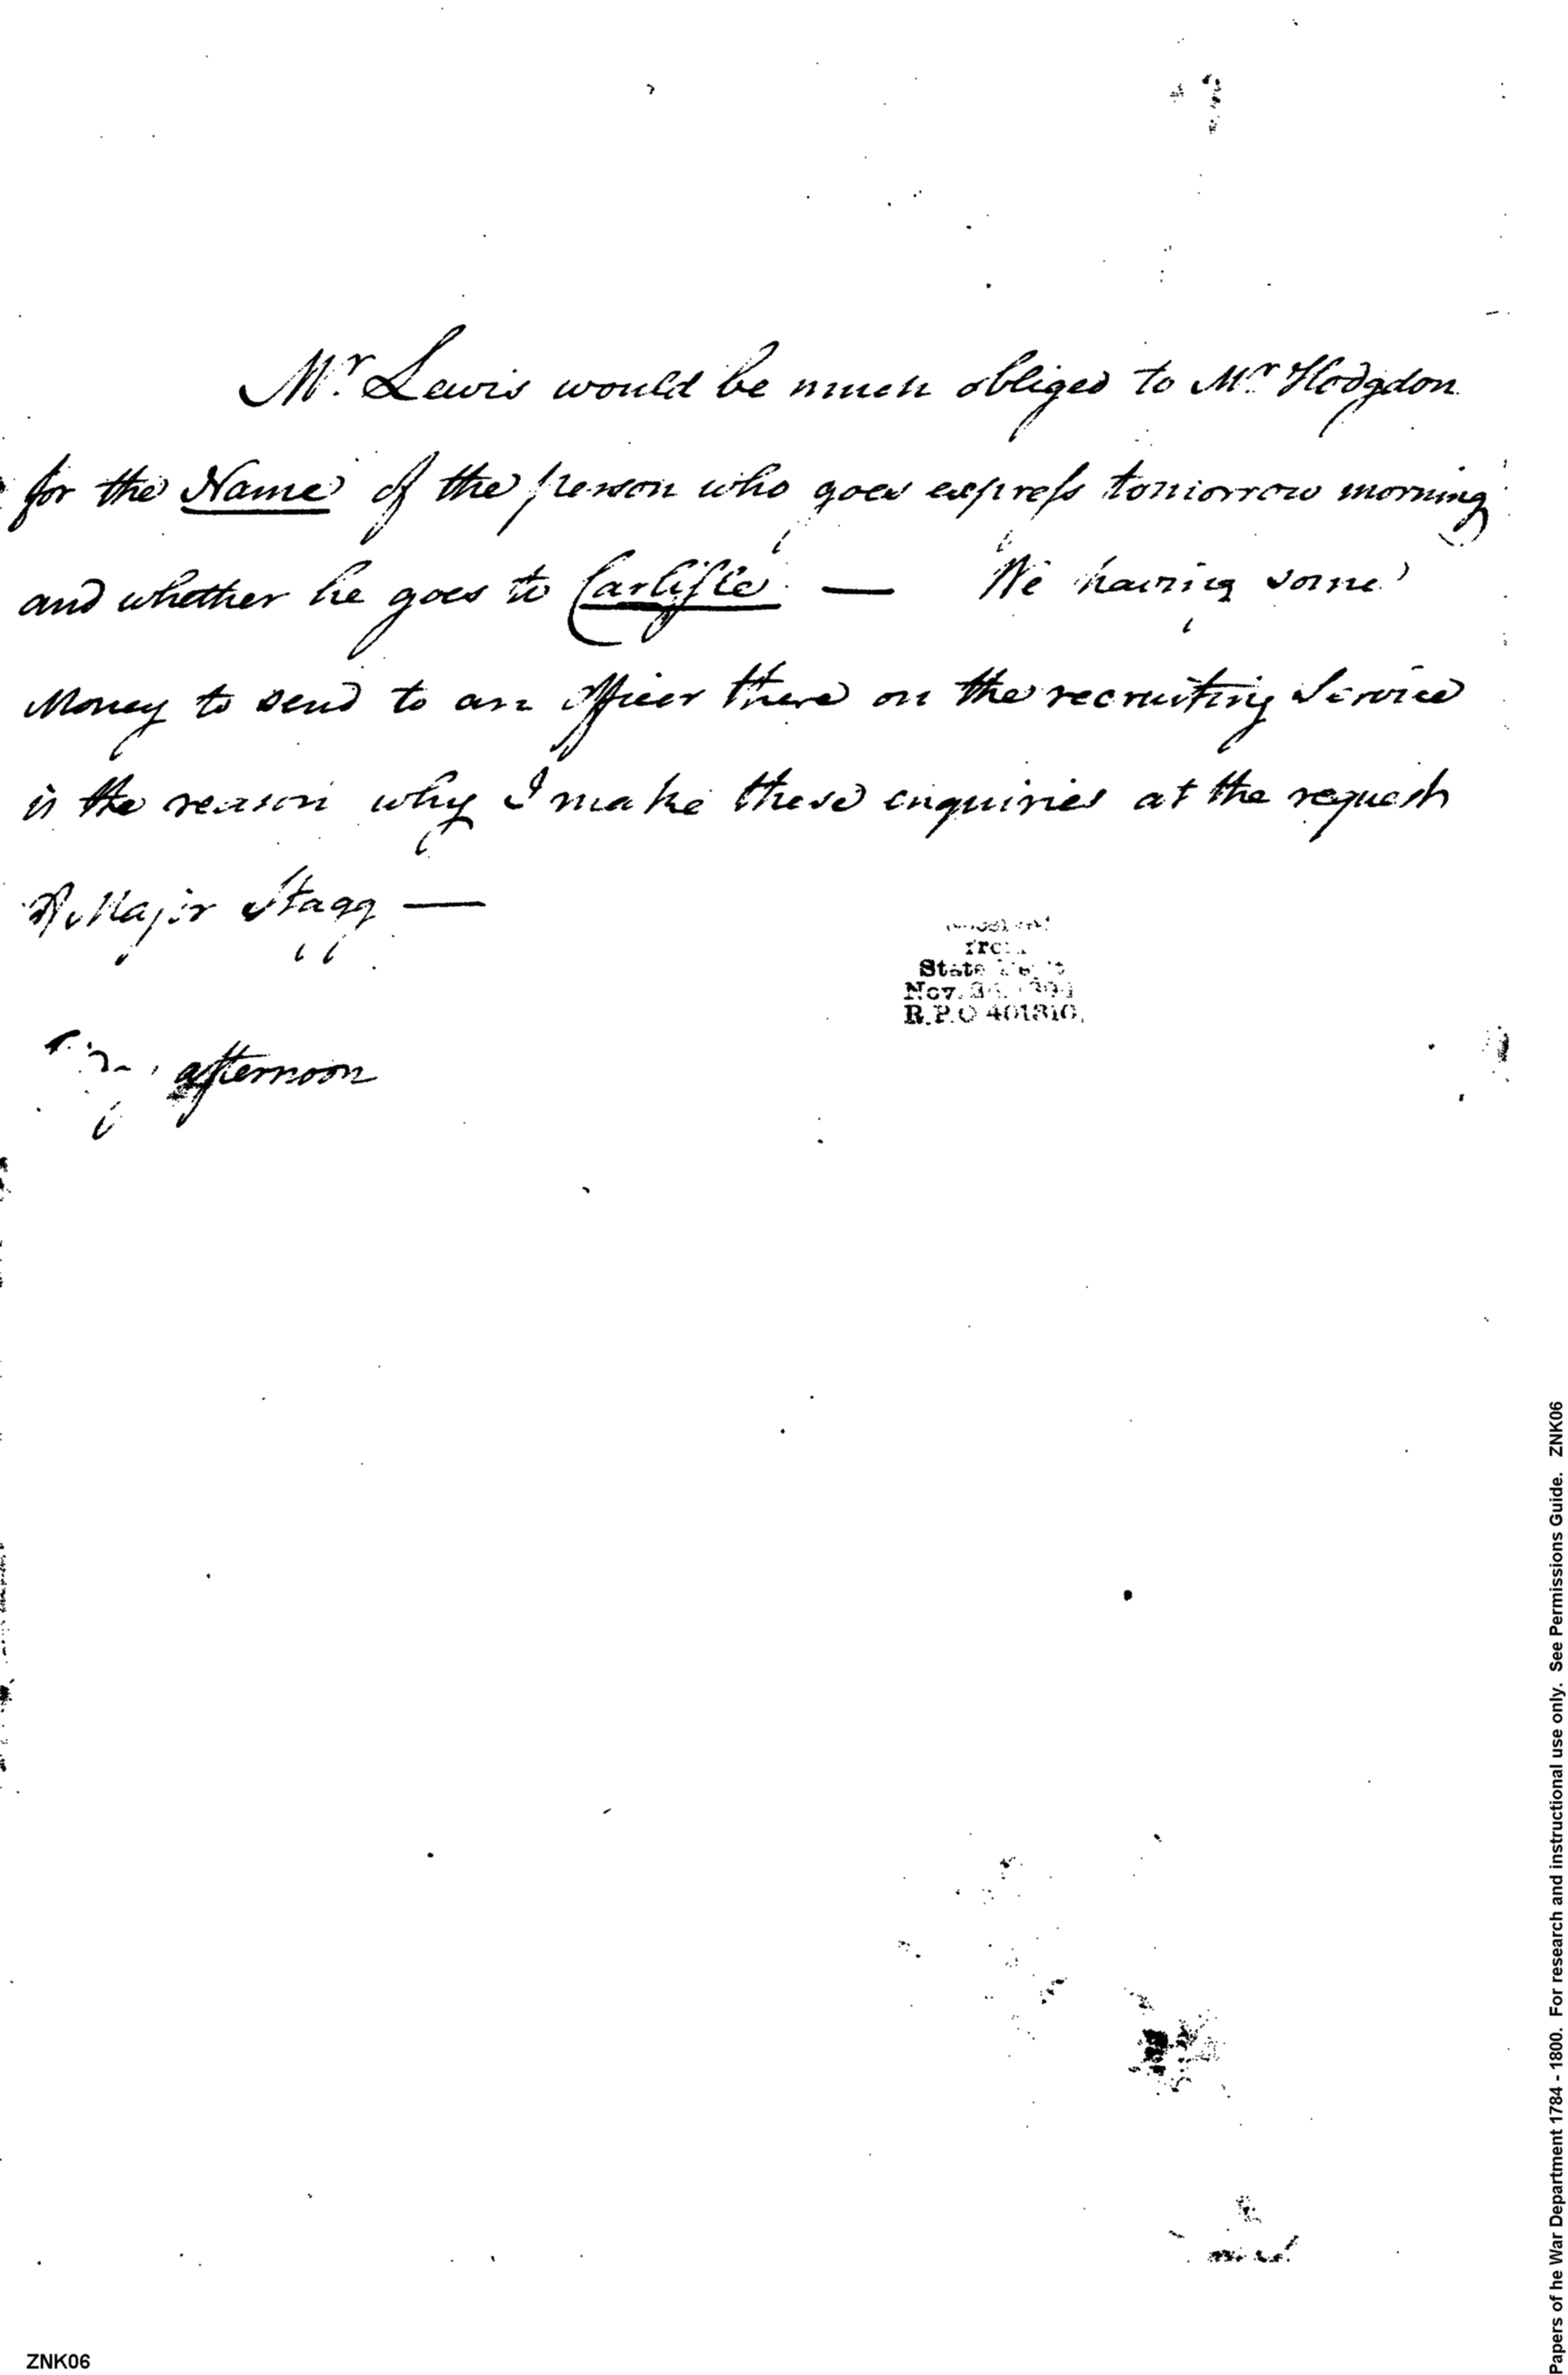 Mr. Lewis would be much obliged to Mr. Hodgdon
for the Name of the person who goes express tomorrow morning
and whether he goes to Carlisle — We having some
Money to send to an officer there on the recruiting Service
is the reason why I make these enquiries at the request
of Major Stagg —
from
State
Nov.
R.P.O 401310.
afternoon
Papers of he War Department 1784 - 1800. For research and instructional use only. See Permissions Guide. ZNK06
ZNK06